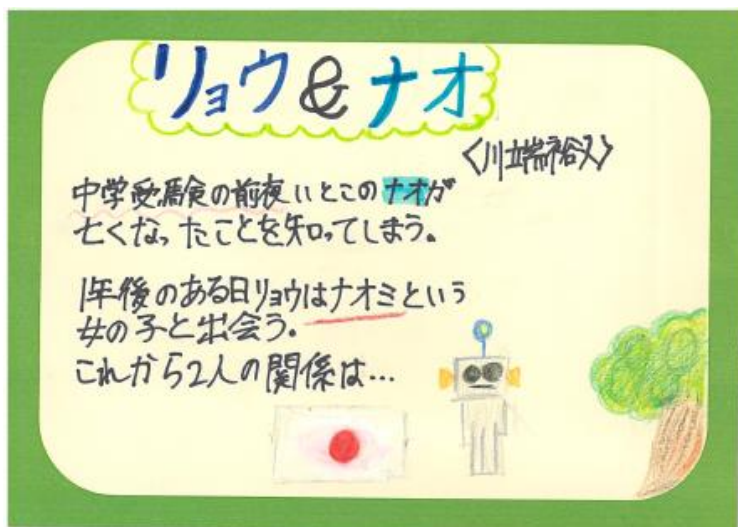 リョウ&ナオ
〈川端裕人〉
中学受験の前夜いとこのナオが
亡くなったことを知ってしまう。
1年後のある日リョウはナオミという
女の子と出会う。
これから2人の関係は…